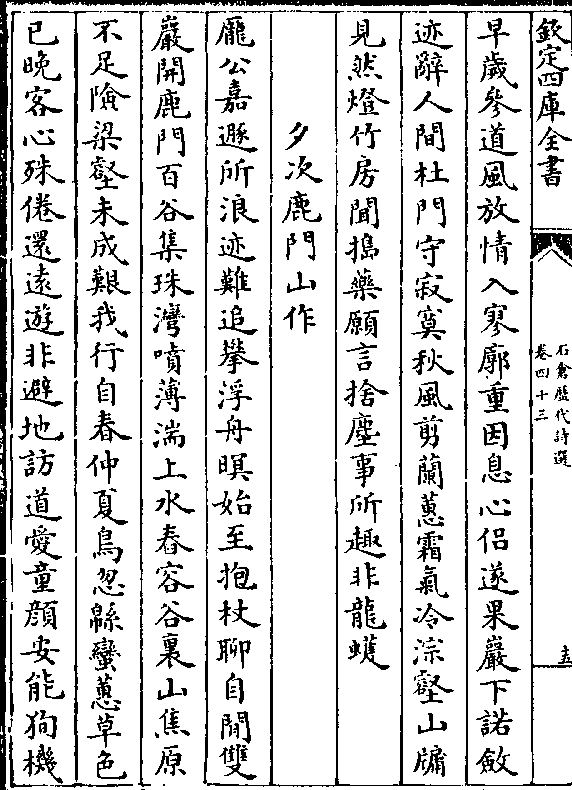 欽定四庫全書
石倉歷代詩選
卷四十三
十五
早歲參道風放情入寥廓重因息心侣遂果巖下諾斂
迹辭人間杜門守寂寞秋風剪蘭蕙霜氣冷淙壑山牖
見然燈竹房聞搗藥願言捨塵事所趣非龍蠖
夕次鹿門山作
龐公嘉遯所浪迹難追攀浮舟暝始至抱杖聊自閒雙
巖開鹿門百谷集珠灣噴薄湍上水舂容谷裏山焦原
不足險梁壑未成艱我行自春仲夏鳥忽緜蠻蕙草色
已晚客心殊倦還遠遊非避地訪道愛童顔安能狥機